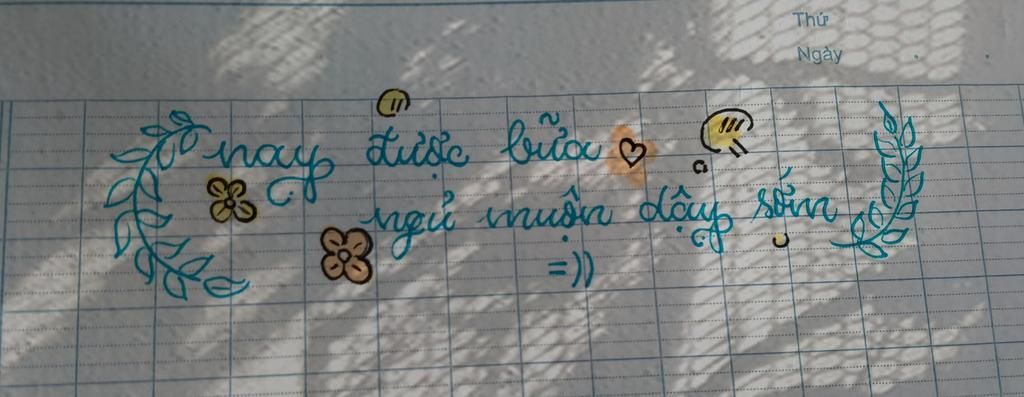 Thứ
Ngày
nay được bữa
ngủ muộn dậy sớm
=))